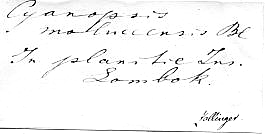 Cyanopsis
moluccensis Bl
In planitie Ins.
Lombok.
Zollinger